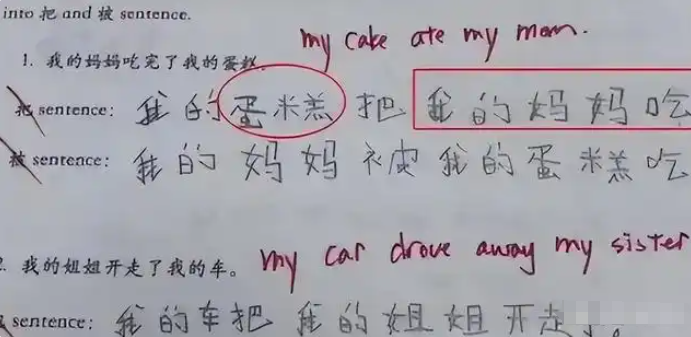 into 把 and 被 sentence.
my cake ate my mom.
1. 我的妈妈吃完了我的蛋糕
把 sentence: 我的蛋米糕把我的妈妈吃
被 sentence: 我的妈妈被我的蛋米糕吃
2. 我的姐姐开走了我的车。 my car drove away my sister
sentence: 我的车把我的姐姐开走